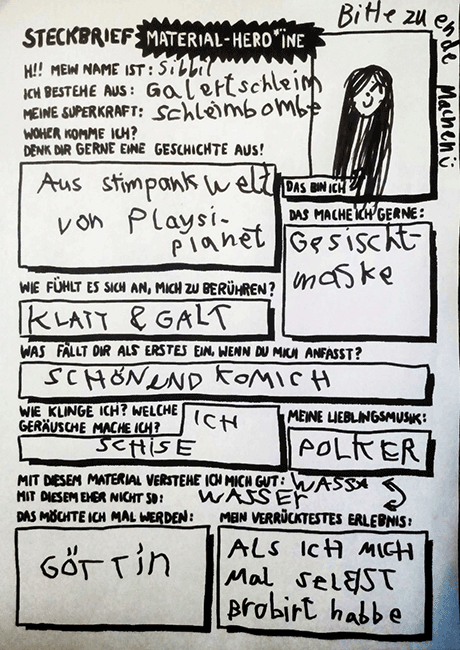 Bitte zu ende machen ü
STECKBRIEF MATERIAL-HERO*INE
H!! MEIN NAME IST: Sibbil
ICH BESTEHE AUS: Galertschleim
MEINE SUPERKRAFT: Schleimbombe
WOHER KOMME ICH?
DENK DIR GERNE EINE GESCHICHTE AUS!
Aus stimpank Welt
von Playsi-
planet
DAS BIN ICH
DAS MACHE ICH GERNE:
Gesischt-
maske
WIE FÜHLT ES SICH AN, MICH ZU BERÜHREN?
KLATT & GALT
WAS FÄLLT DIR ALS ERSTES EIN, WENN DU MICH ANFASST?
SCHÖN UND KOMICH
WIE KLINGE ICH? WELCHE
GERÄUSCHE MACHE ICH?
ICH
SCHISE
MEINE LIEBLINGSMUSIK:
POLKER
MIT DIESEM MATERIAL VERSTEHE ICH MICH GUT:
MIT DIESEM EHER NICHT SO: WASSER
DAS MÖCHTE ICH MAL WERDEN:
GÖTTin
MEIN VERRÜCKTESTES ERLEBNIS:
ALS ICH MICH
mal seLBST
Brobirt habbe